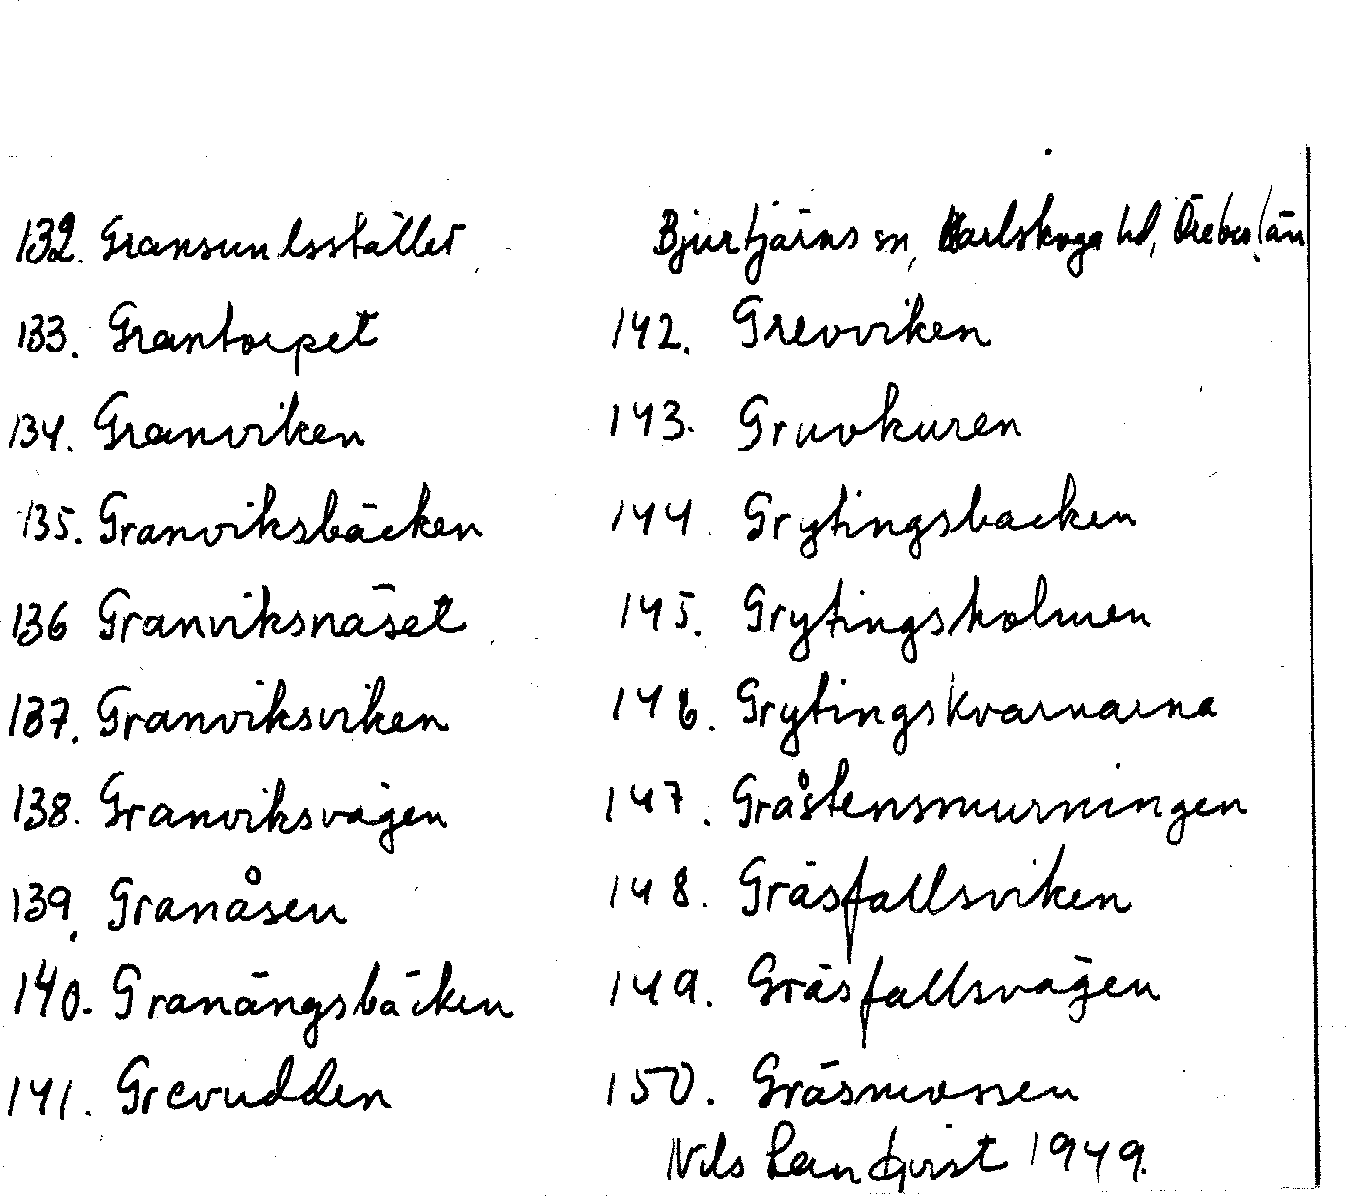 Bjurtjärns sn, Karlskoga hd, Örebro län
132. Gransundsstället
133. Grantorpet
134. Granviken
135. Granviksbäcken
136 Granviksnäset
137. Granviksviken
138. Granviksvägen
139. Granåsen
140. Granängsbäcken
141. Grevudden
142. Grevviken
143. Gruvkuren
144. Grytingsbacken
145. Grytingsholmen
146. Grytingskvarnarna
147. Gråstensmurningen
148. Gräsfallsviken
149. Gräsfallsvägen
150. Gräsmossen
Nils Landqvist 1949.